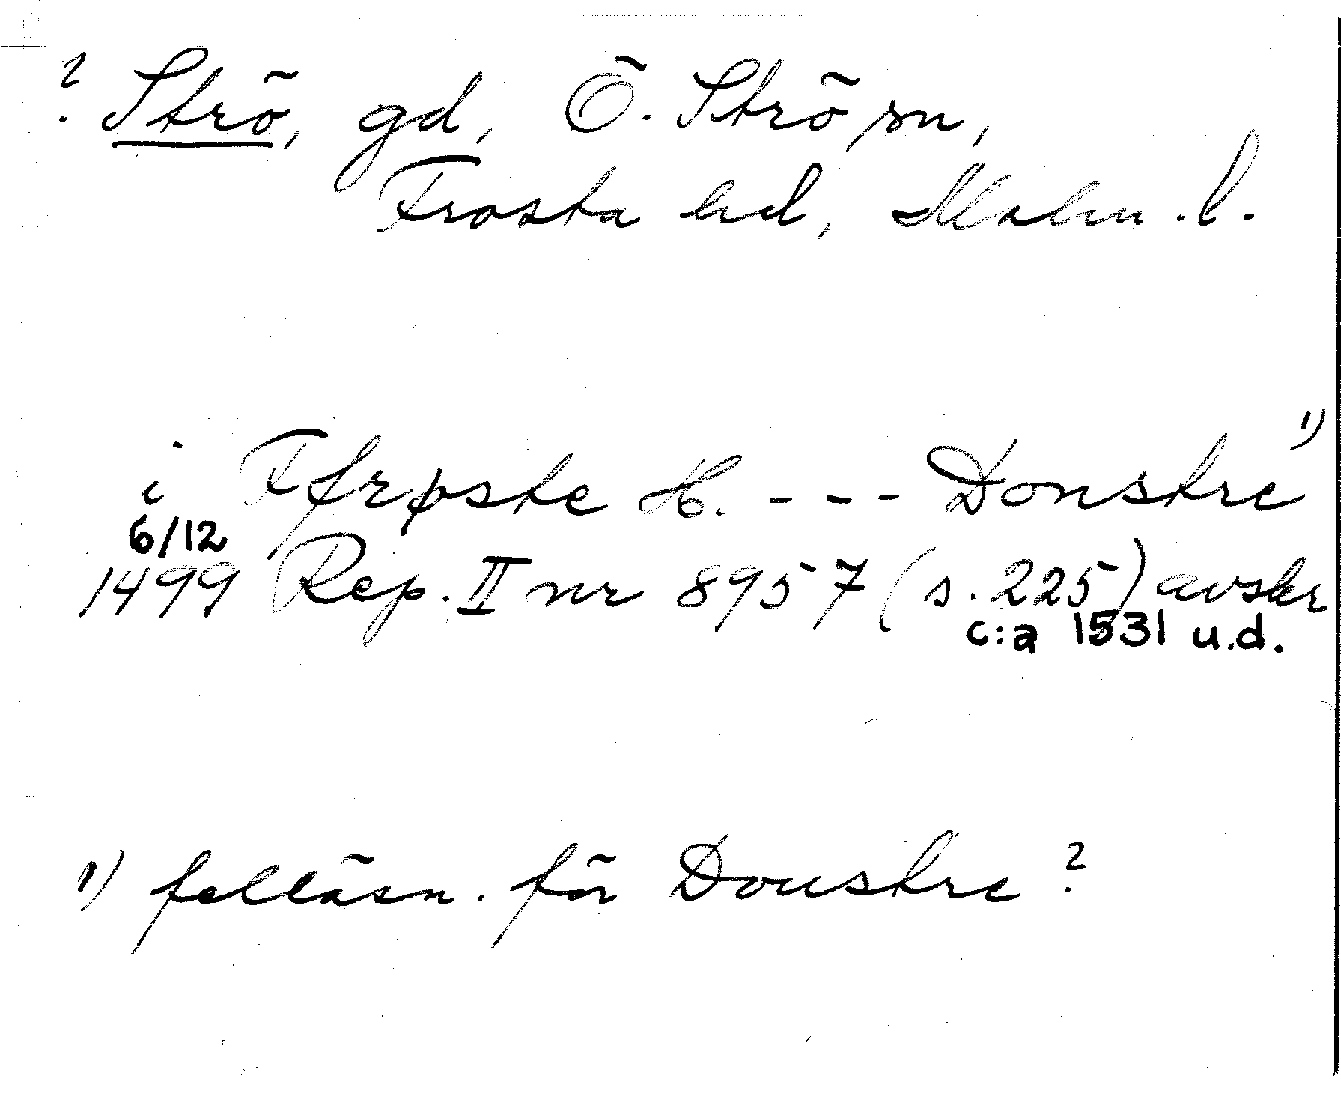 ? Strö, gd, Ö. Strö sn,
Frosta hd, Malm. l.
i Ffrøste H. - - - Donstre 1)
6/12
1499 Rep. II nr 8957 (s. 225) avskr
c:a 1531 u.d.
1) felläsn. för Doustre ?